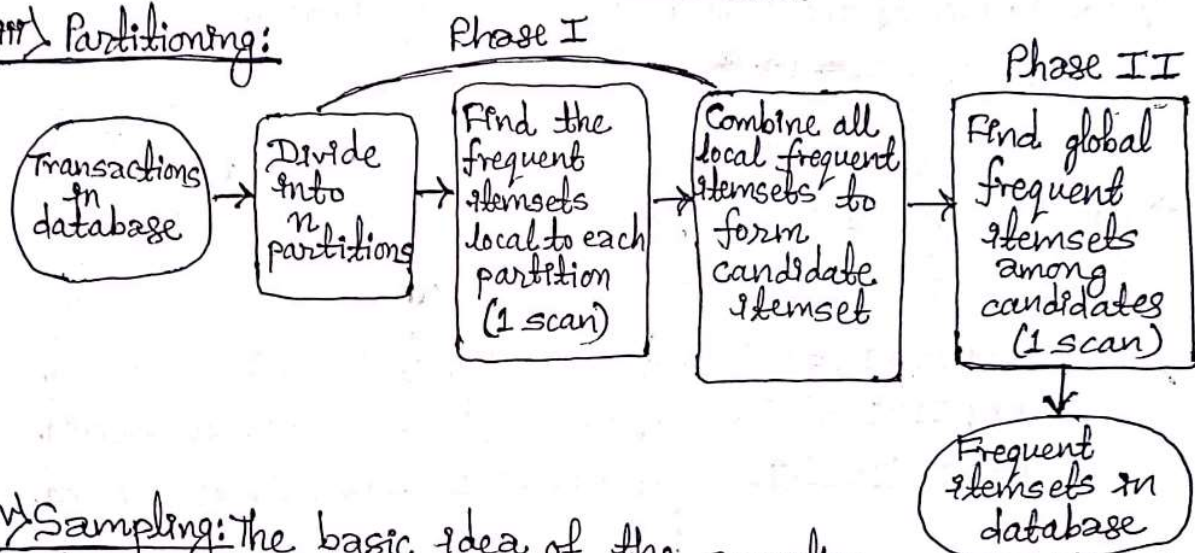 iii) Partitioning:
Phase I
Phase II
Transactions
in
database
Divide
into
n
partitions
Find the
frequent
itemsets
local to each
partition
(1 scan)
Combine all
local frequent
itemsets to
form
candidate
itemset
Find global
frequent
itemsets
among
candidates
(1 scan)
Frequent
itemsets in
database
Sampling: The basic idea of the